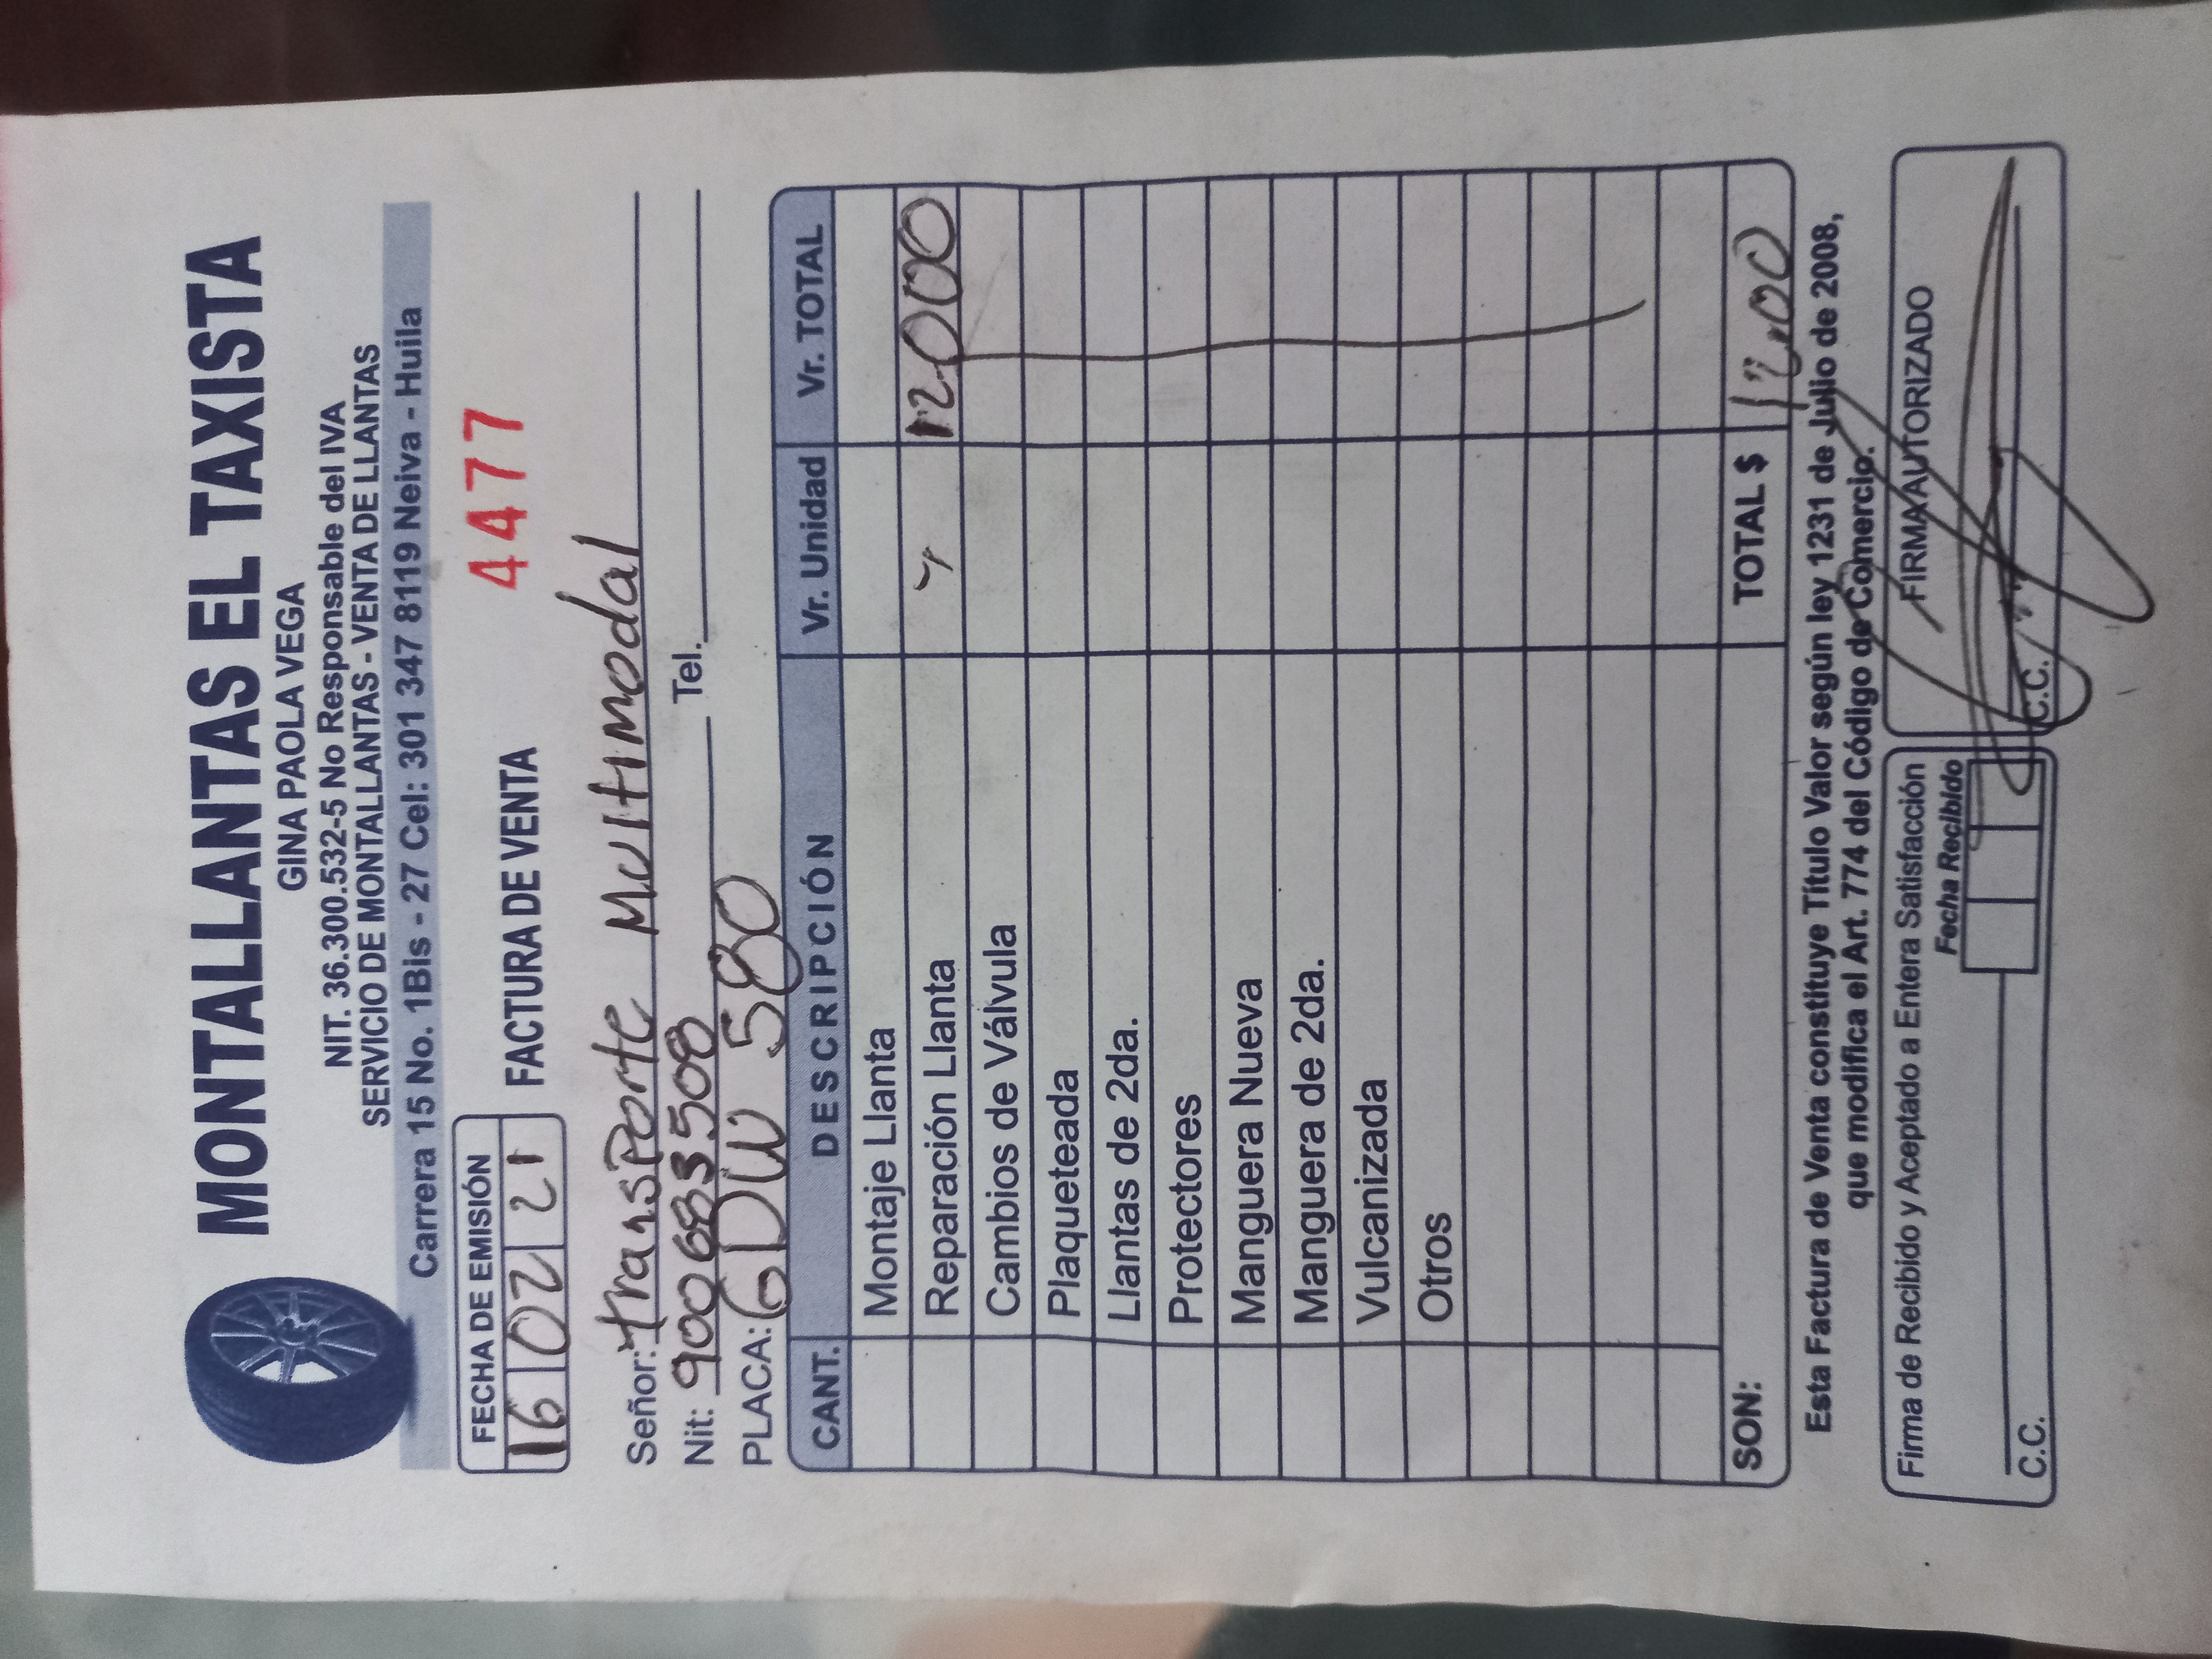 MONTALLANTAS EL TAXISTA
GINA PAOLA VEGA
NIT. 36.300.532-5 No Responsable del IVA
SERVICIO DE MONTALLANTAS - VENTA DE LLANTAS
Carrera 15 No. 1Bis - 27 Cel: 301 347 8119 Neiva - Huila
FECHA DE EMISIÓN
16 02 21
FACTURA DE VENTA 4477
Señor: transporte Multimodal
Nit: 900683508 Tel.
PLACA: GDW 580
CANT. DESCRIPCIÓN Vr. Unidad Vr. TOTAL
Montaje Llanta
Reparación Llanta 12000
Cambios de Válvula
Plaqueteada
Llantas de 2da.
Protectores
Manguera Nueva
Manguera de 2da.
Vulcanizada
Otros
SON: TOTAL $
Esta Factura de Venta constituye Título Valor según ley 1231 de Julio de 2008,
que modifica el Art. 774 del Código de Comercio.
Firma de Recibido y Aceptado a Entera Satisfacción
Fecha Recibido
C.C.
FIRMA AUTORIZADO
C.C.